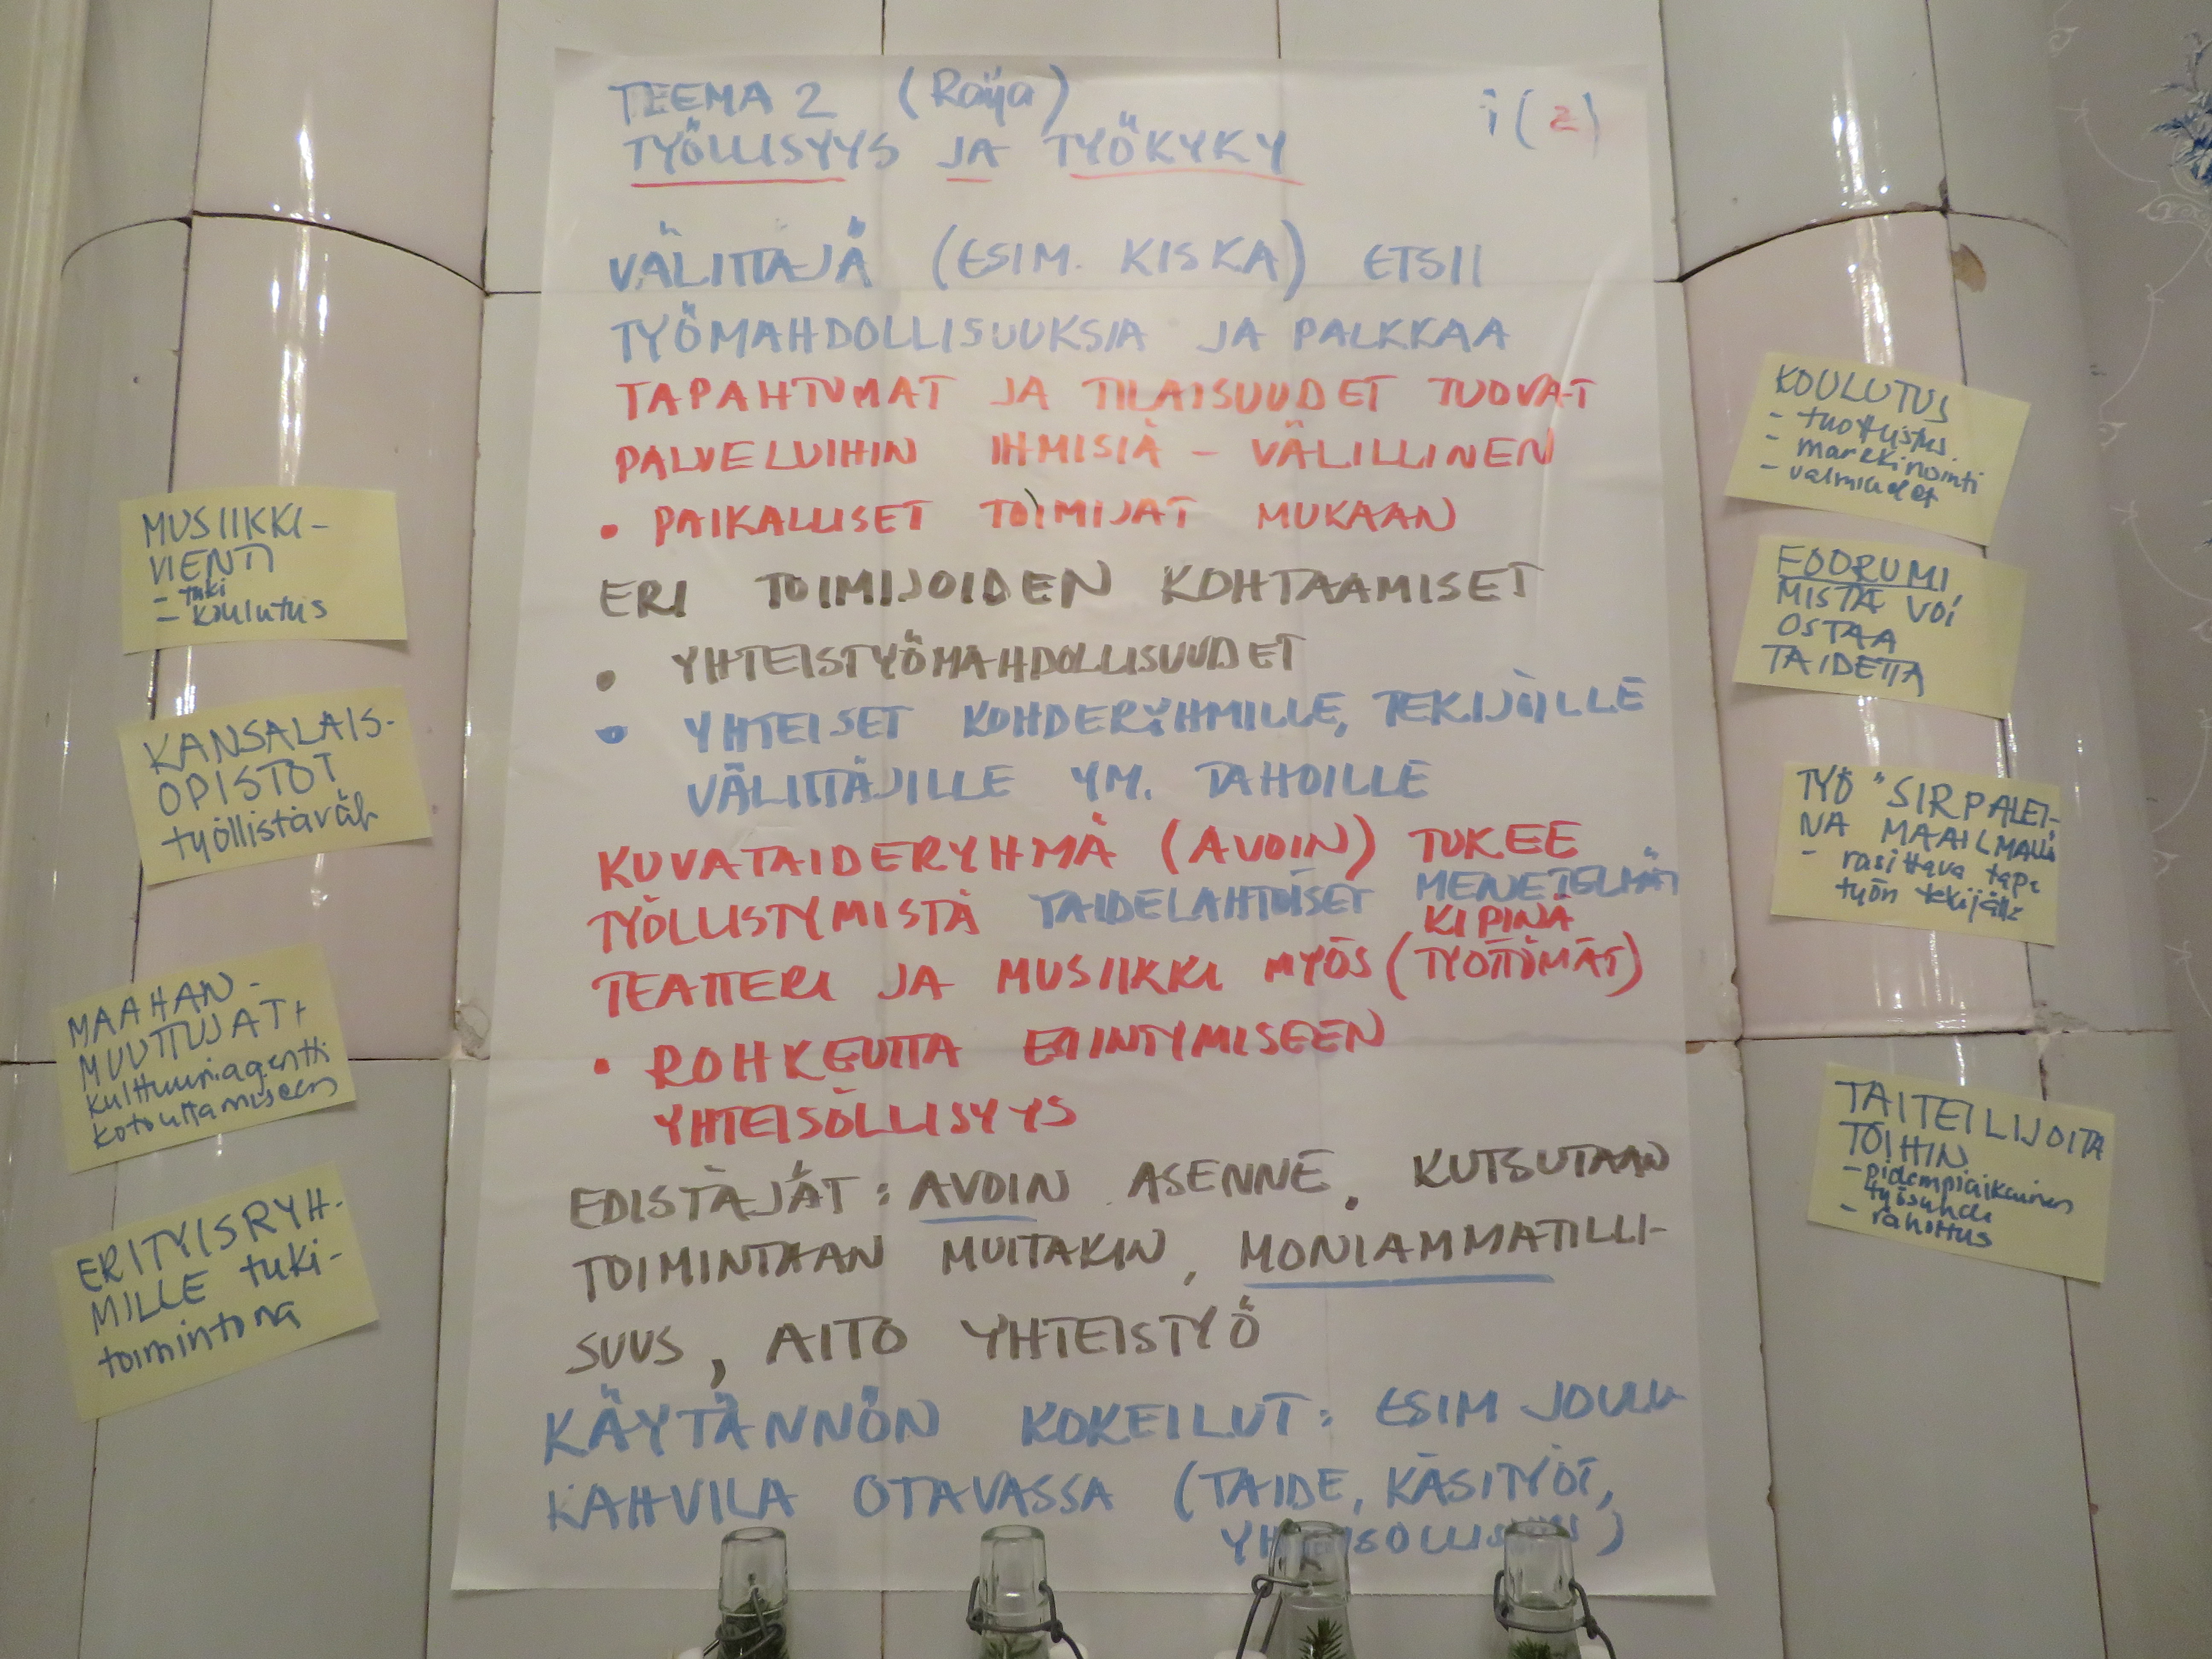 TEEMA 2 (Raija)
i (2)
TYÖLLISYYS JA TYÖKYKY
VÄLITTÄJÄ (ESIM. KISKA) ETSII
TYÖMAHDOLLISUUKSIA JA PALKKAA
TAPAHTUMAT JA TILAISUUDET TUOVAT
PALVELUIHIN IHMISIÄ – VÄLILLINEN
• PAIKALLISET TOIMIJAT MUKAAN
ERI TOIMIJOIDEN KOHTAAMISET
• YHTEISTYÖMAHDOLLISUUDET
• YHTEISET KOHDERYHMILLE, TEKIJÖILLE
VÄLITTÄJILLE YM. TAHOILLE
KUVATAIDERYHMÄ (AVOIN) TUKEE
TYÖLLISTYMISTÄ TAIDELAHTÖISET MENETELMÄT
KIPINÄ
TEATTERI JA MUSIIKKI MYÖS (TYÖTTÖMÄT)
• ROHKEUTTA ESIINTYMISEEN
YHTEISÖLLISYYS
EDISTÄJÄT: AVOIN ASENNE. KUTSUTAAN
TOIMINTAAN MUITAKIN, MONIAMMATILLI-
SUUS, AITO YHTEISTYÖ
KÄYTÄNNÖN KOKEILUT: ESIM JOULU
KAHVILA OTAVASSA (TAIDE, KÄSITYÖT,
YHTEISÖLLISYYS)
MUSIIKKI-
VIENTI
- tuki
- koulutus
KANSALAIS-
OPISTOT
työllistävät
MAAHAN-
MUUTTUJAT +
kulttuuriagentti
kotouttamiseen
ERITYISRYH-
MILLE tuki-
toimintona
KOULUTUS
- tuotteistus
- markkinointi
- valmiudet
FOORUMI,
MISTÄ VOI
OSTAA
TAIDETTA
TYÖ "SIRPALEI-
NA MAAILMALLA
- rasittava tapa
työn tekijälle
TAITEILIJOITA
TÖIHIN
- pidempiaikainen
työsuhde
- rahoitus